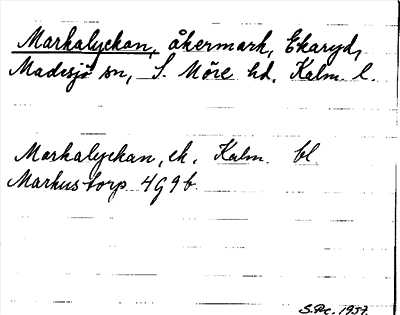 Markalyckan, åkermark, Ekaryd,
Madesjö sn, S. Möre hd, Kalm. l.
Markalyckan, ek. Kalm. bl
Markustorp 4G9b.
1937.